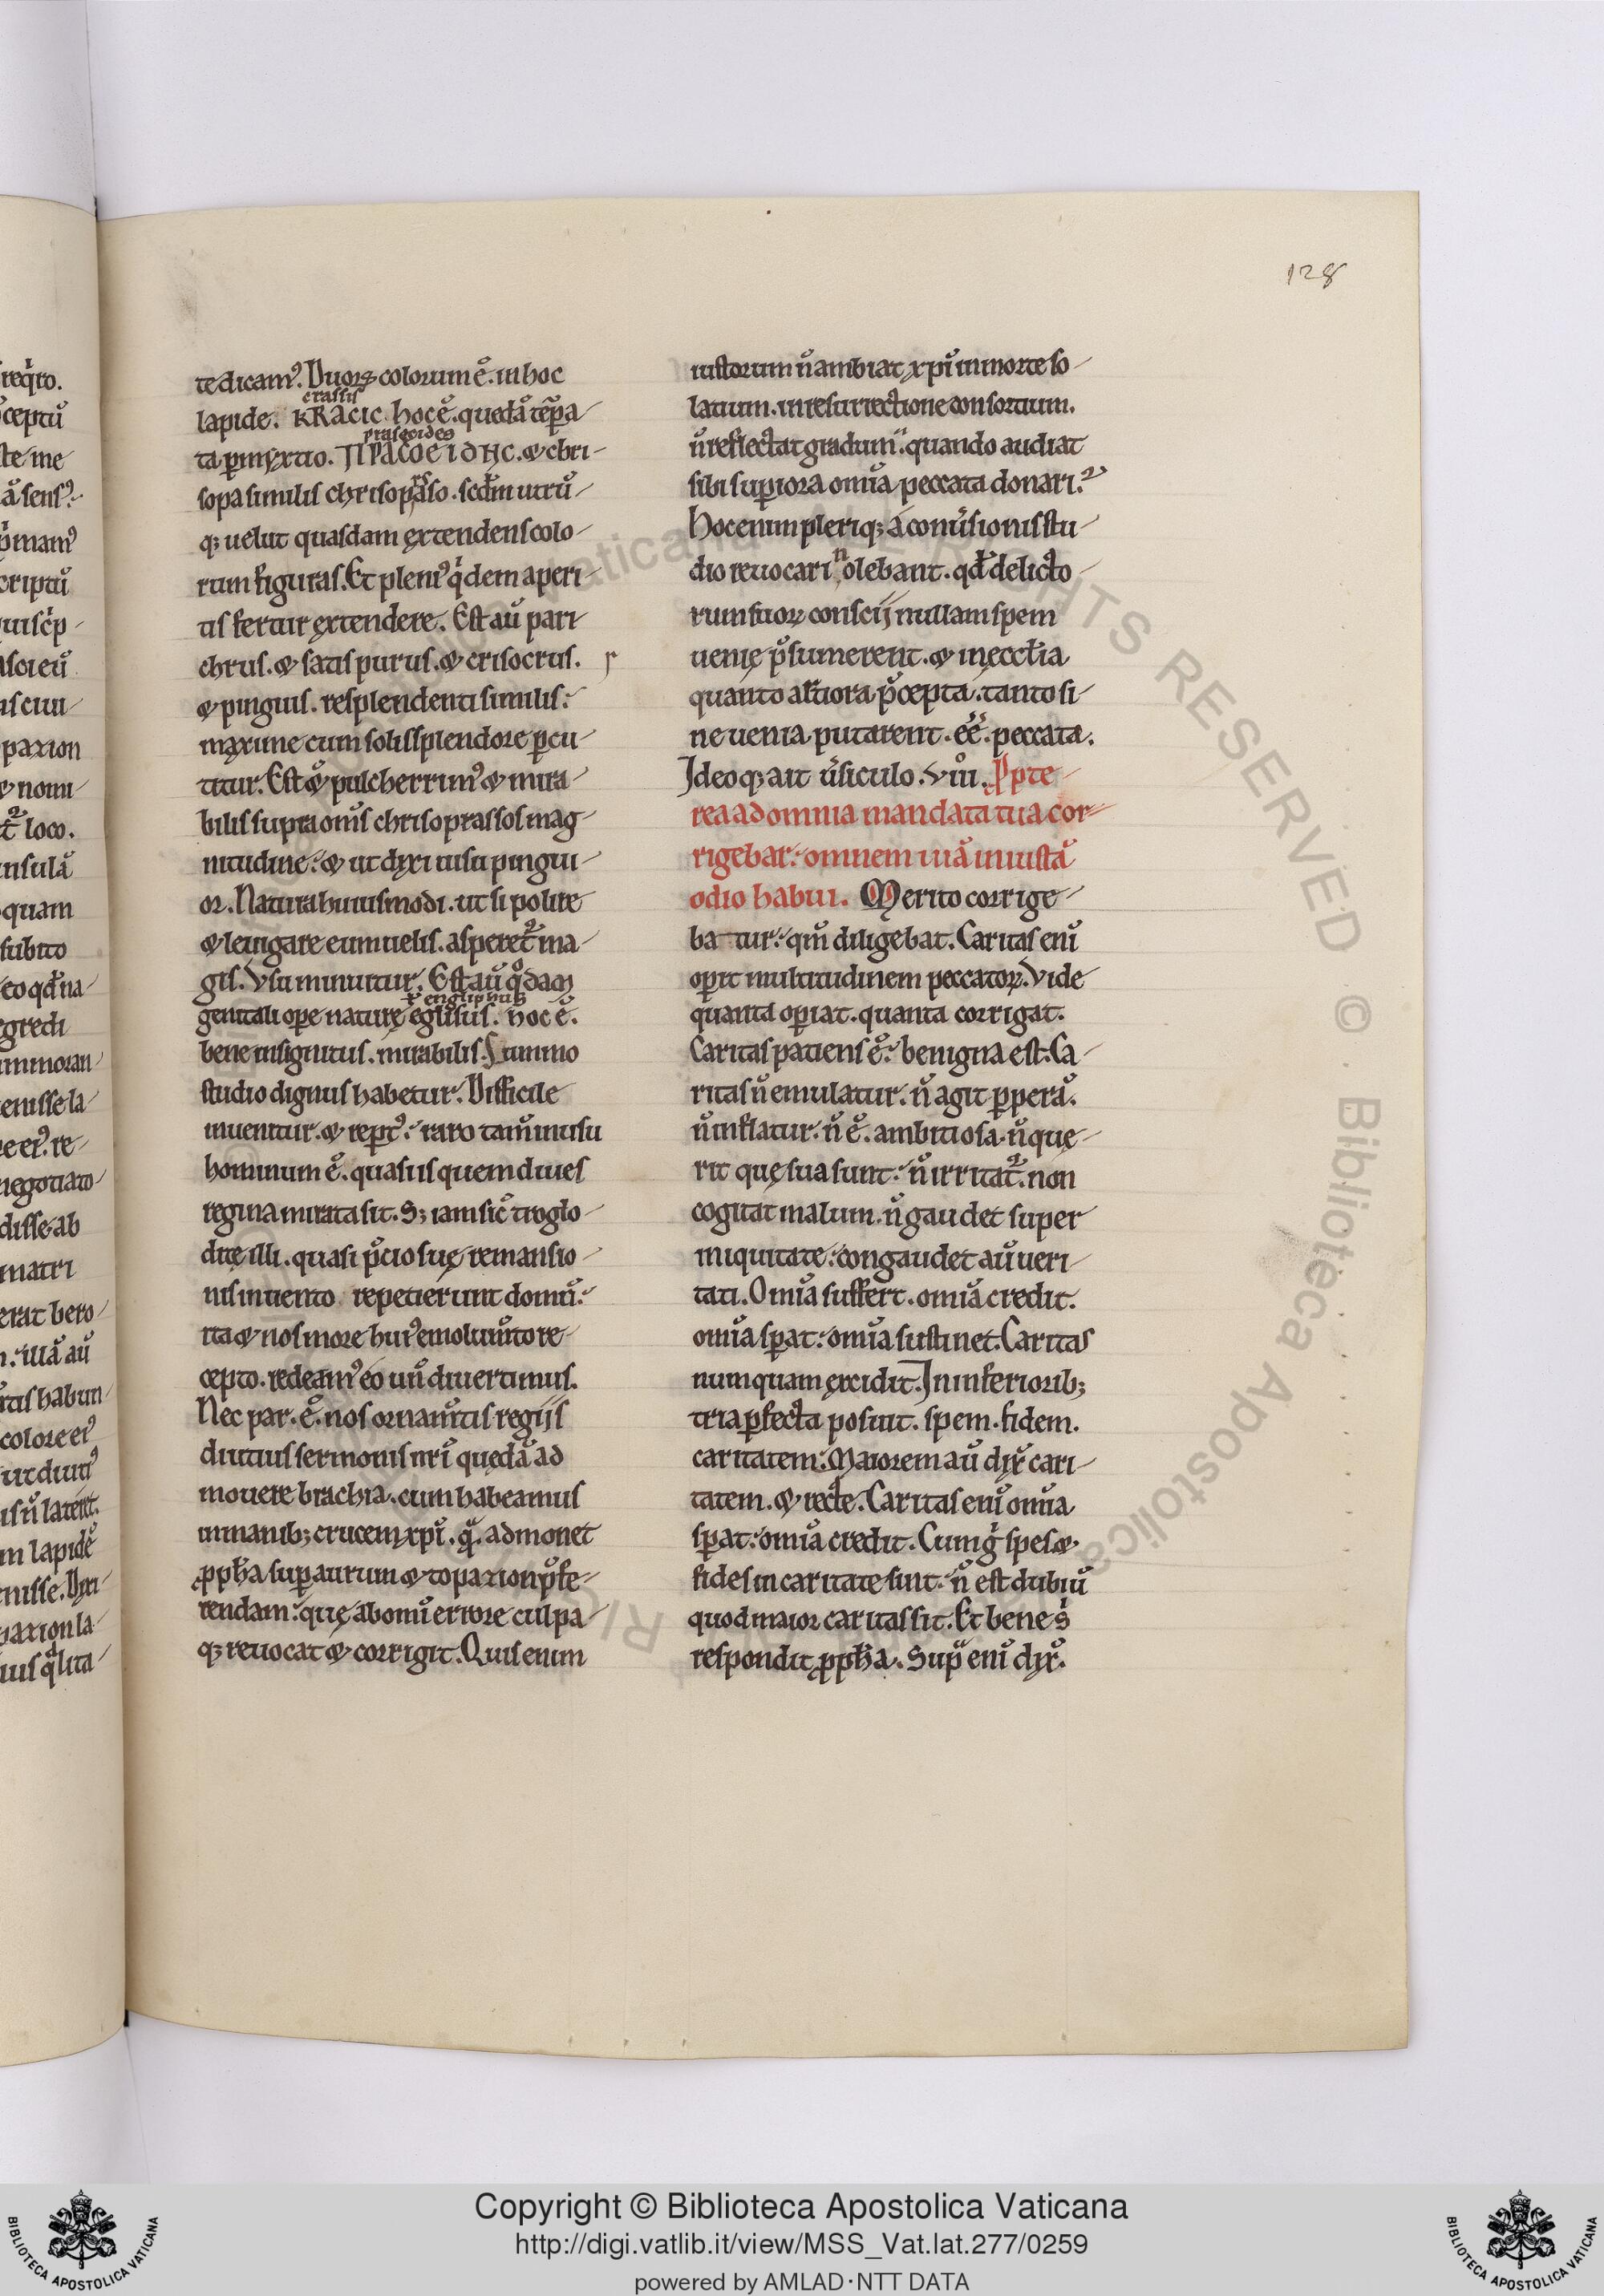 128
te dicamꝰ. Duoꝝ colorum ē. in hoc
crassis
lapide. KRACIC. hoc ē. quedā tēpa
praseoides
ta ꝑmyxtio. ΠΡACOEIDHC. & chri
sopa similis chrisopraso. scdm utrū
qꝫ uelut quasdam ęxtendens colo
rum figuras. Et pleniꝰ qͥdem aperi
tis fertur ęxtendere. Est aū pari
chrus. & satis purus. & crisocrus. r
& pinguis. resplendenti similis.
maxime cum solis splendore ꝑcu
titur. Est & pulcherrimꝰ & mira
bilis supra om̄s chrisoprassos mag
nitudine. & ut dixi uisu pingui
or. Natura huiusmodi. ut si polire
& leuigare eum uelis. asperet᷑ ma
gis. Vsu minuitur. Est aū qͦdam
engliphus
genitali oꝑe naturę eglisus. hoc ē.
bene insignitus. mirabilis. Summo
studio dignus habetur. Difficile
inuenitur. & reptꝰ. raro tam̄ in usu
hominum ē. quasi is quem diues
regina mirata sit. Sꝫ iam sic troglo
ditę illi. quasi p̄cio suę remansio
nis inuento repetierunt domū.
ita & nos more huiꝰ emolumto re
cepto. redeamꝰ eo un̄ diuertimus.
Nec par. ē. nos ornam̄tis regijs
diutius sermonis nr̄i quędā ad
mouere brachia. cum habeamus
in manibꝫ crucem xp̄i. qͣ. admonet
ꝓph̄a suꝑ aurum & topazion p̄fe
rendam. quę ab omī errore culpa
qꝫ reuocat & corrigit. Quis enim
iustorum n̄ ambiat xp̄i in morte so
latium. in resurrectione consortium.
n̄ reflectat gradum. quando audiat
sibi suꝑiora om̄ia peccata donari.
Hoc enim pleriqꝫ a conūsionis stu
dio reuocari nolebant. qd̄ delicto
rum suoꝝ conscij nullam spem
uenię p̄sumerent. & in ęcctia
quanto altiora p̄cepta. tanto si
ne uenia putarent. ēē. peccata.
Ideoqꝫ ait ūsiculo. viii. Ꝓpte
rea ad omnia mandata tua cor
rigebar. omnem uiā iniustā
odio habui. Merito corrige
batur. qm̄ diligebat. Caritas enī
oꝑit multitudinem peccatoꝝ. Vide
quanta oꝑiat. quanta corrigat.
Caritas patiens ē. benigna est. Ca
ritas n̄ emulatur. n̄ agit ꝑperā.
n̄ inflatur. n̄ ē. ambitiosa. n̄ quę
rit quę sua sunt. n̄ irritat᷑. non
cogitat malum. n̄ gaudet super
iniquitate. congaudet aū ueri
tati. Om̄ia suffert. om̄ia credit.
om̄ia sꝑat. om̄ia sustinet. Caritas
numquam ęxcidit. In inferioribꝫ
tria ꝑfecta posuit. spem. fidem.
caritatem. Maiorem aū dix̄ cari
tatem. & recte. Caritas enī om̄ia
sꝑat. om̄ia credit. Cum gͥ spes &
fides in caritate sint. n̄ est dubiū
quod maior caritas sit. Et bene sͥ
respondit ꝓph̄a. Sup̄ enī dix̄.
Copyright © Biblioteca Apostolica Vaticana
http://digi.vatlib.it/view/MSS_Vat.lat.277/0259
powered by AMLAD·NTT DATA